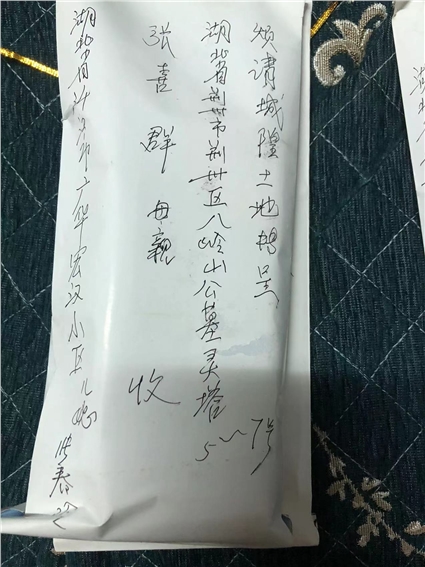 烦请城隍土地转呈
湖北省荆州市荆州区八岭山公墓灵塔5~7号
张喜群母亲 收
湖北省 市广华宏汉小区儿媳